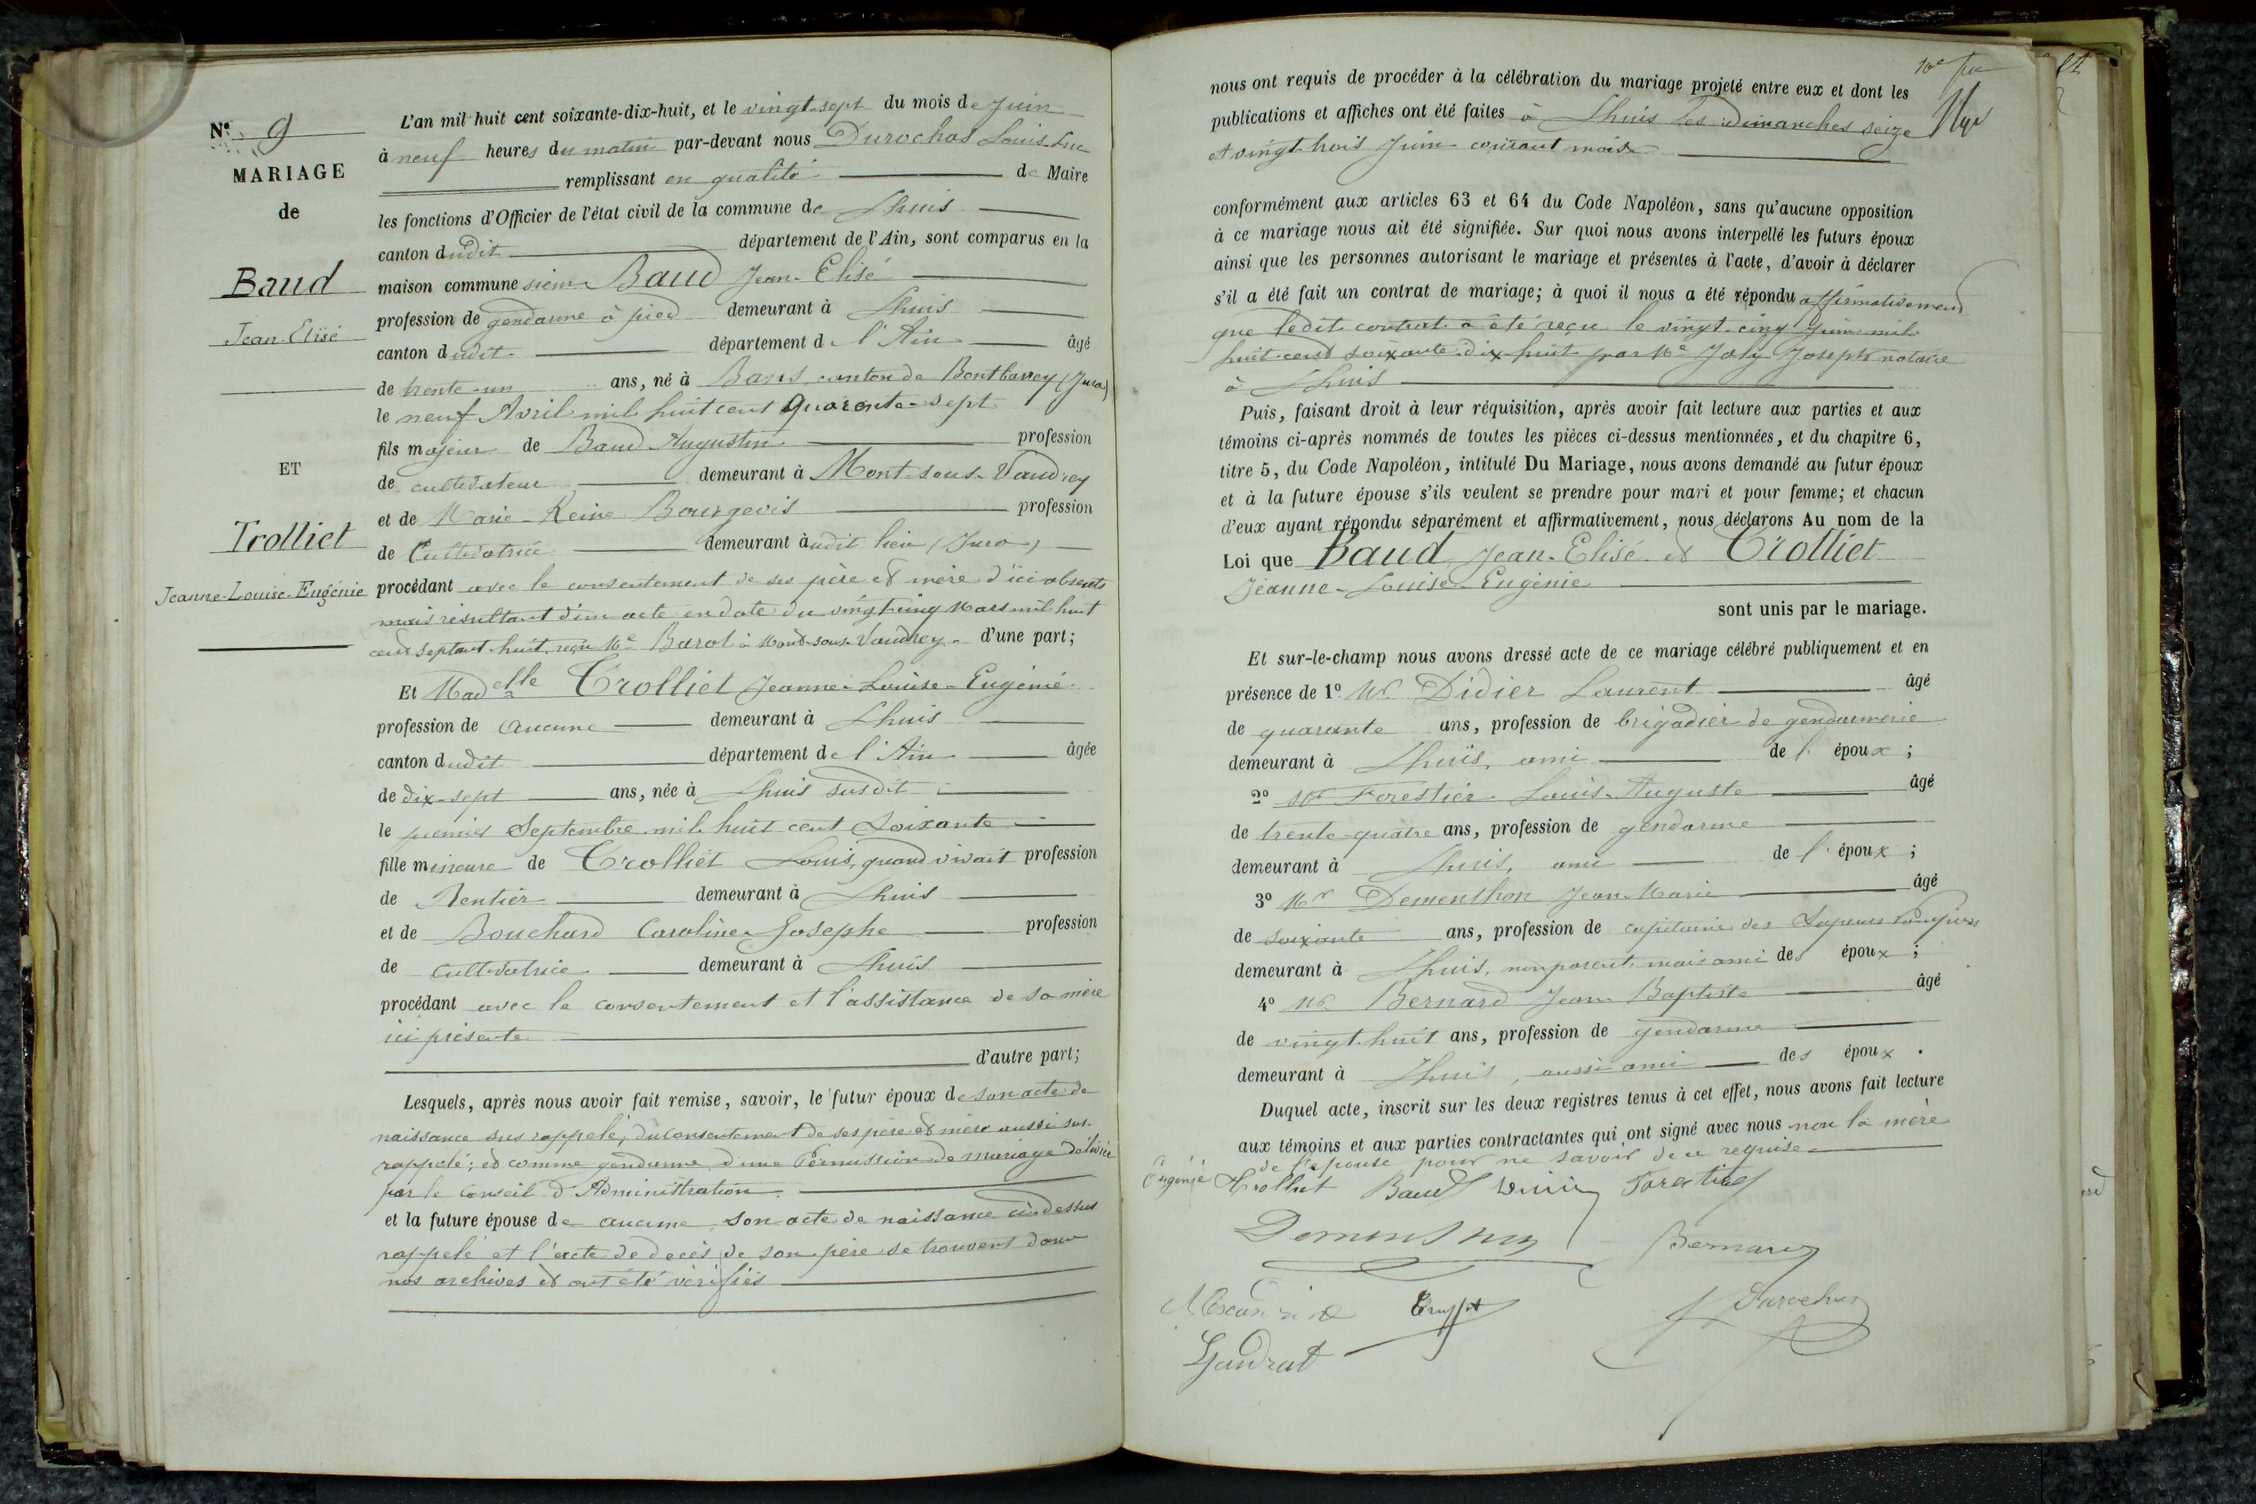 Nº 9
MARIAGE
de
Baud
Jean-Elisé
ET
Trolliet
Jeanne-Louise-Eugénie
L'an mil huit cent soixante-dix-huit, et le vingt-sept du mois de Juin
à neuf heures du matin par-devant nous Durochas Louis-Luc
remplissant en qualité de Maire
les fonctions d'Officier de l'état civil de la commune de Lhuis
canton dudit département de l'Ain, sont comparus en la
maison commune sieur Baud Jean-Elisé
profession de gendarme à pied demeurant à Lhuis
canton dudit département de l'Ain âgé
de trente-un ans, né à Bans, canton de Montbarrey (Jura)
le neuf Avril mil huit cent quarante-sept
fils majeur de Baud Augustin profession
de cultivateur demeurant à Mont-sous-Vaudrey
et de Marie-Reine Bourgeois profession
de Cultivatrice demeurant audit lieu (Jura)
procédant avec le consentement de ses père et mère d'ici absents
mais résultant d'un acte en date du vingt-cinq Mars mil huit
cent septant-huit, reçu Me Barot à Mont-sous-Vaudrey. d'une part;
Et Madelle Trolliet Jeanne-Louise-Eugénie
profession de aucune demeurant à Lhuis
canton dudit département de l'Ain âgée
de dix-sept ans, née à Lhuis susdit
le premier Septembre mil huit cent soixante
fille mineure de Trolliet Louis, quand vivait profession
de Rentier demeurant à Lhuis
et de Bouchard Caroline-Josephe profession
de cultivatrice demeurant à Lhuis
procédant avec le consentement et l'assistance de sa mère
ici présente
d'autre part;
Lesquels, après nous avoir fait remise, savoir, le futur époux de son acte de
naissance sus rappelé, du consentement de ses père et mère aussi sus-
rappelé; et comme gendarme, d'une Permission de mariage délivrée
par le Conseil d'Administration.
et la future épouse de aucune, son acte de naissance ci-dessus
rappelé et l'acte de décès de son père se trouvent dans
nos archives et ont été vérifiés
10e
nous ont requis de procéder à la célébration du mariage projeté entre eux et dont les
publications et affiches ont été faites à Lhuis les dimanches seize
et vingt-trois Juin courant mois
conformément aux articles 63 et 64 du Code Napoléon, sans qu'aucune opposition
à ce mariage nous ait été signifiée. Sur quoi nous avons interpellé les futurs époux
ainsi que les personnes autorisant le mariage et présentes à l'acte, d'avoir à déclarer
s'il a été fait un contrat de mariage; à quoi il nous a été répondu affirmativement
que ledit contrat a été reçu le vingt-cinq Juin mil
huit cent soixante-dix-huit par Me Joly Joseph notaire
à Lhuis
Puis, faisant droit à leur réquisition, après avoir fait lecture aux parties et aux
témoins ci-après nommés de toutes les pièces ci-dessus mentionnées, et du chapitre 6,
titre 5, du Code Napoléon, intitulé Du Mariage, nous avons demandé au futur époux
et à la future épouse s'ils veulent se prendre pour mari et pour femme; et chacun
d'eux ayant répondu séparément et affirmativement, nous déclarons Au nom de la
Loi que Baud Jean-Elisé et Trolliet
Jeanne-Louise-Eugénie
sont unis par le mariage.
Et sur-le-champ nous avons dressé acte de ce mariage célébré publiquement et en
présence de 1º Mr Didier Laurent âgé
de quarante ans, profession de brigadier de gendarmerie
demeurant à Lhuis, ami de l'époux;
2º Mr Forestier Louis-Auguste âgé
de trente-quatre ans, profession de gendarme
demeurant à Lhuis, ami de l'époux;
3º Mr Dementhon Jean-Marie âgé
de soixante ans, profession de capitaine des Sapeurs Pompiers
demeurant à Lhuis, non parent, mais ami des époux;
4º Mr Bernard Jean Baptiste âgé
de vingt-huit ans, profession de gendarme
demeurant à Lhuis, aussi ami des époux.
Duquel acte, inscrit sur les deux registres tenus à cet effet, nous avons fait lecture
aux témoins et aux parties contractantes qui ont signé avec nous non la mère
de l'épouse pour ne savoir de ce requise
Eugénie Trolliet Baud Didier Forestier
Dementhon Bernard
Durochas
Gaudrat